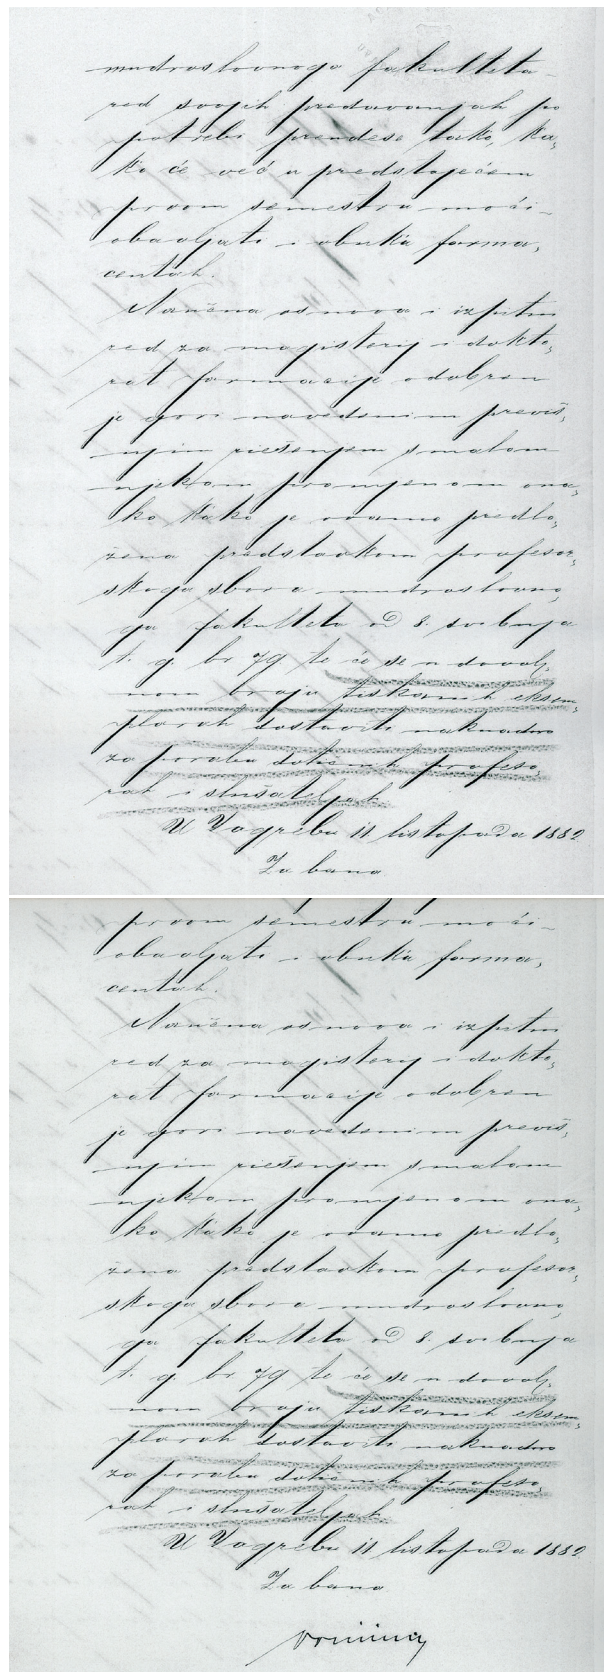 mudroslovnoga fakulteta
red svojih predavanjah po
potrebi preudese tako, ka-
ko će već u predstojećem
prvom semestru moći
obavljati i obuka farma-
ceutah.
Naučna osnova i izpitni
red za magisterij i dokto-
rat farmacije odobren
je gori navedenim previš-
njim riešenjem s malom
njekom promjenom ona-
ko kako je ovamo predlo-
žena predstavkom profesor-
skoga sbora mudroslovno-
ga fakulteta od 8. svibnja
t. g. br 79 te će se u dovolj-
nom broju tiskanih eksem-
plarah dostaviti naknadno
za porabu dotičnih profeso-
rah i slušateljah.
U Zagrebu 11 listopada 1882
Za bana
prvom semestru moći
obavljati i obuka farma-
ceutah.
Naučna osnova i izpitni
red za magisterij i dokto-
rat farmacije odobren
je gori navedenim previš-
njim riešenjem s malom
njekom promjenom ona-
ko kako je ovamo predlo-
žena predstavkom profesor-
skoga sbora mudroslovno-
ga fakulteta od 8. svibnja
t. g. br 79 te će se u dovolj-
nom broju tiskanih eksem-
plarah dostaviti naknadno
za porabu dotičnih profeso-
rah i slušateljah.
U Zagrebu 11 listopada 1882
Za bana